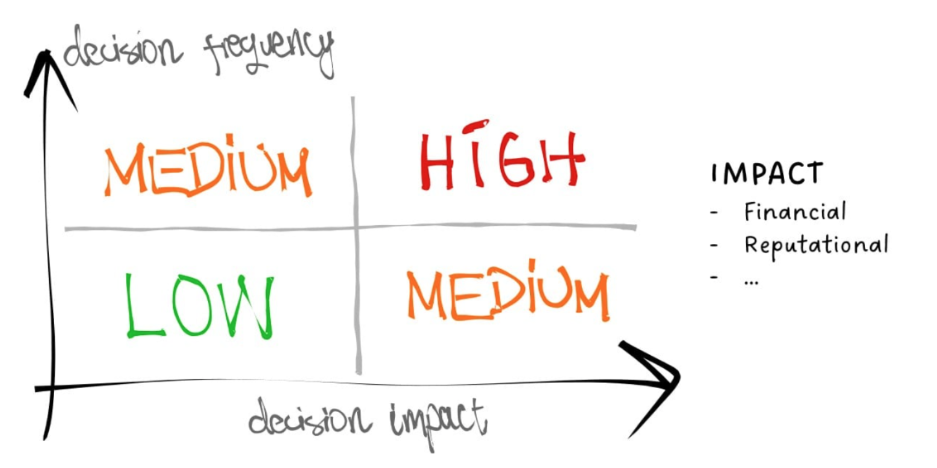 decision frequency
MEDIUM
HIGH
LOW
MEDIUM
decision impact
IMPACT
- Financial
- Reputational
- ...